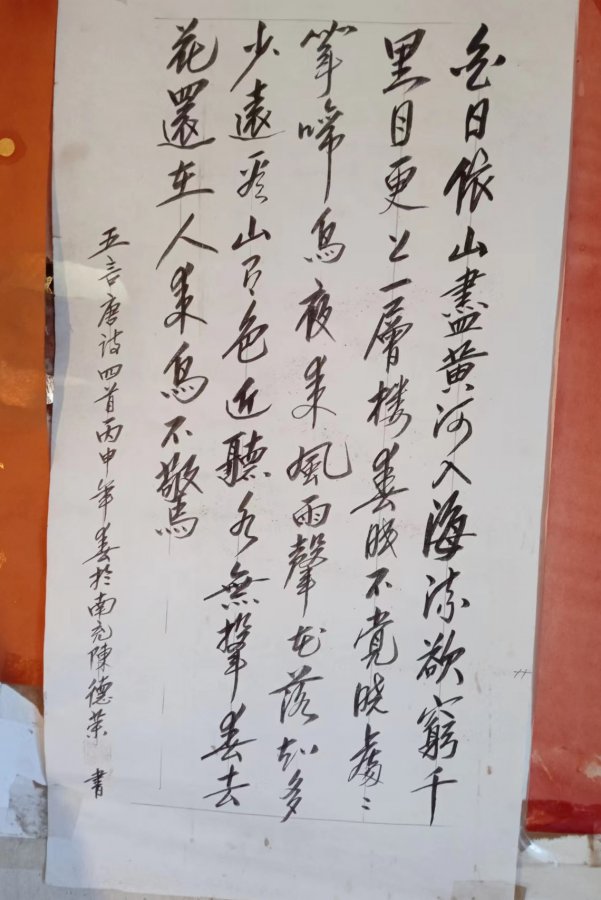 白日依山盡黄河入海流欲窮千
里目更上一層楼春眠不覚晓處〻
聞啼鳥夜来風雨聲花落知多
少遠看山有色近聽水無聲春去
花還在人来鳥不驚
五言唐诗四首丙申年春於南充陳德荣 書